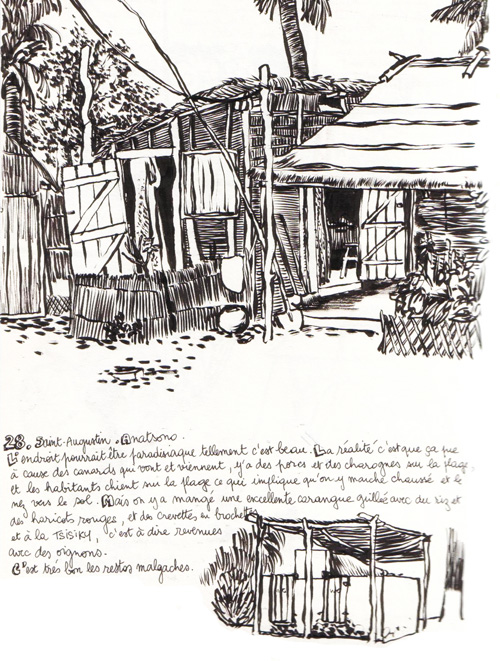 28. Saint-Augustin. Anatsono.
L'endroit pourrait être paradisiaque tellement c'est beau. La réalité c'est que ça pue
à cause des canards qui vont et viennent, y'a des porcs et des charognes sur la plage,
et les habitants chient sur la plage ce qui implique qu'on y marche chaussé et le
nez vers le sol. Mais on y a mangé une excellente carangue grillée avec du riz et
des haricots rouges, et des crevettes en brochettes
et à la TSISIKY, c'est à dire revenues
avec des oignons.
C'est très bon les restos malgaches.